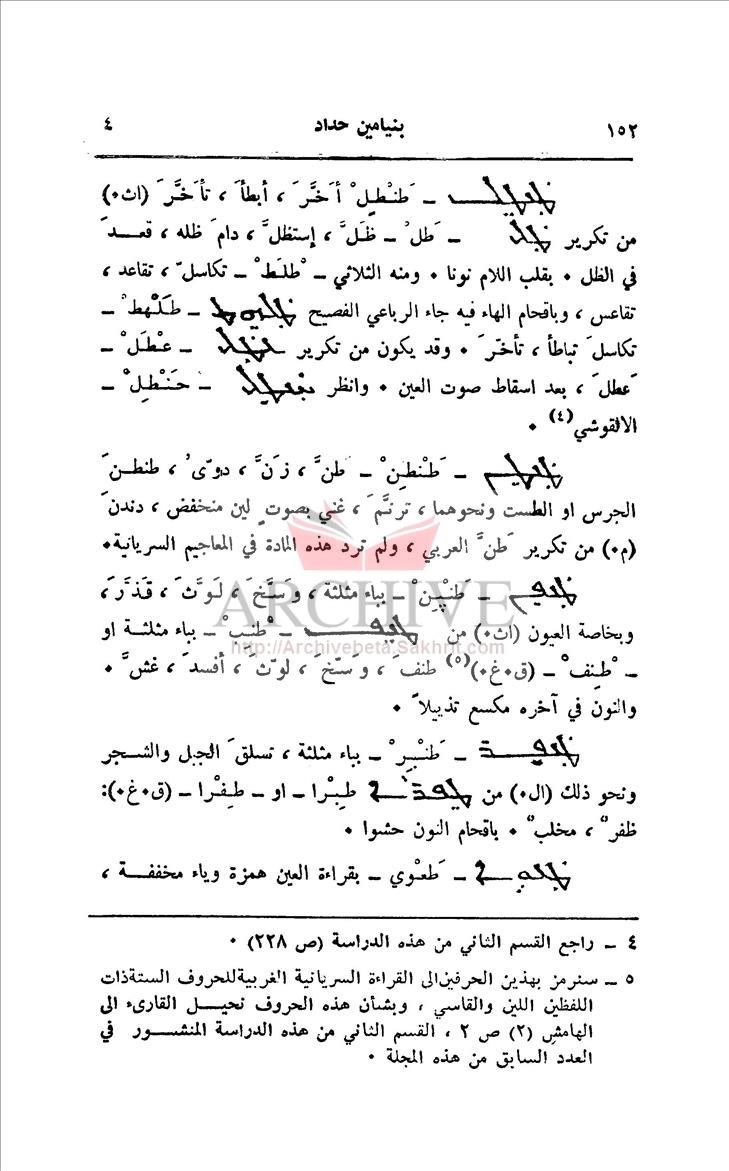 ١٥٢ بنيامين حداد ٤
ـ َطنْطِلْ أَخَّرَ ، أبطأَ ، تأخَّرَ (اث٠)
من تكرير ـ َطلْ ـ ظَلَّ ، إستظلَّ ، دامَ ظله ، قعدَ
في الظل ٠ بقلب اللام نونا ٠ ومنه الثلاثي ـ ْطلَطْ ـ تكاسلّ ، تقاعد ،
تقاعس ، وباقحام الهاء فيه جاء الرباعي الفصيح ـ طَلْهِطْ ـ
تكاسلَ تباطأ ، تأخّرَ ٠ وقد يكون من تكرير ـ عْطَلْ ـ
َعطلَ ، بعد اسقاط صوت العين ٠ وانظر ـ حَنْطِلْ ـ
الالقوشي(٤) ٠
ـ َطنْطِنْ ـ طنَّ ، زنَّ ، دوّى ، طنطنَ
الجرس او الطست ونحوهما ، ترنَّمَ ، غني بصوتٍ لين منخفض ، دندنَ
(م٠) من تكرير َطنَّ العربي ، ولم ترد هذه المادة في المعاجيم السريانية٠
ـ َطنْپِنْ ـ بباء مثلثة ، وَسَّخَ ، لَوَّثَ ، قَذَّرَ ،
وبخاصة العيون (اث٠) من ـ ْطنَپْ ـ بباء مثلثة او
ـ ْطنِف ْ ـ (ق٠غ٠)(٥) طنفَ ، وَسّخَ ، لوّثَ ، أفسدَ ، غشَّ ٠
والنون في آخره مكسع تذييلاً ٠
ـ َطنْپِرْ ـ بباء مثلثة ، تسلقَ الجبل والشجر
ونحو ذلك (ال٠) من طِپْرا ـ او ـ طِفْرا ـ (ق٠غ٠):
ظفر ، مخلب ٠ باقحام النون حشوا ٠
ـ َطعْوي ـ بقراءة العين همزة وياء مخففة ،
٤ ـ راجع القسم الثاني من هذه الدراسة (ص ٢٢٨) ٠
٥ ـ سنرمز بهذين الحرفين الى القراءة السريانية الغربية للحروف الستة ذات
اللفظين اللين والقاسي ، وبشأن هذه الحروف نحيل القارىء الى
الهامش (٢) ص ٢ ، القسم الثاني من هذه الدراسة المنشور في
العدد السابق من هذه المجلة ٠
ARCHIVE
http://Archivebeta.Sakhrit.com